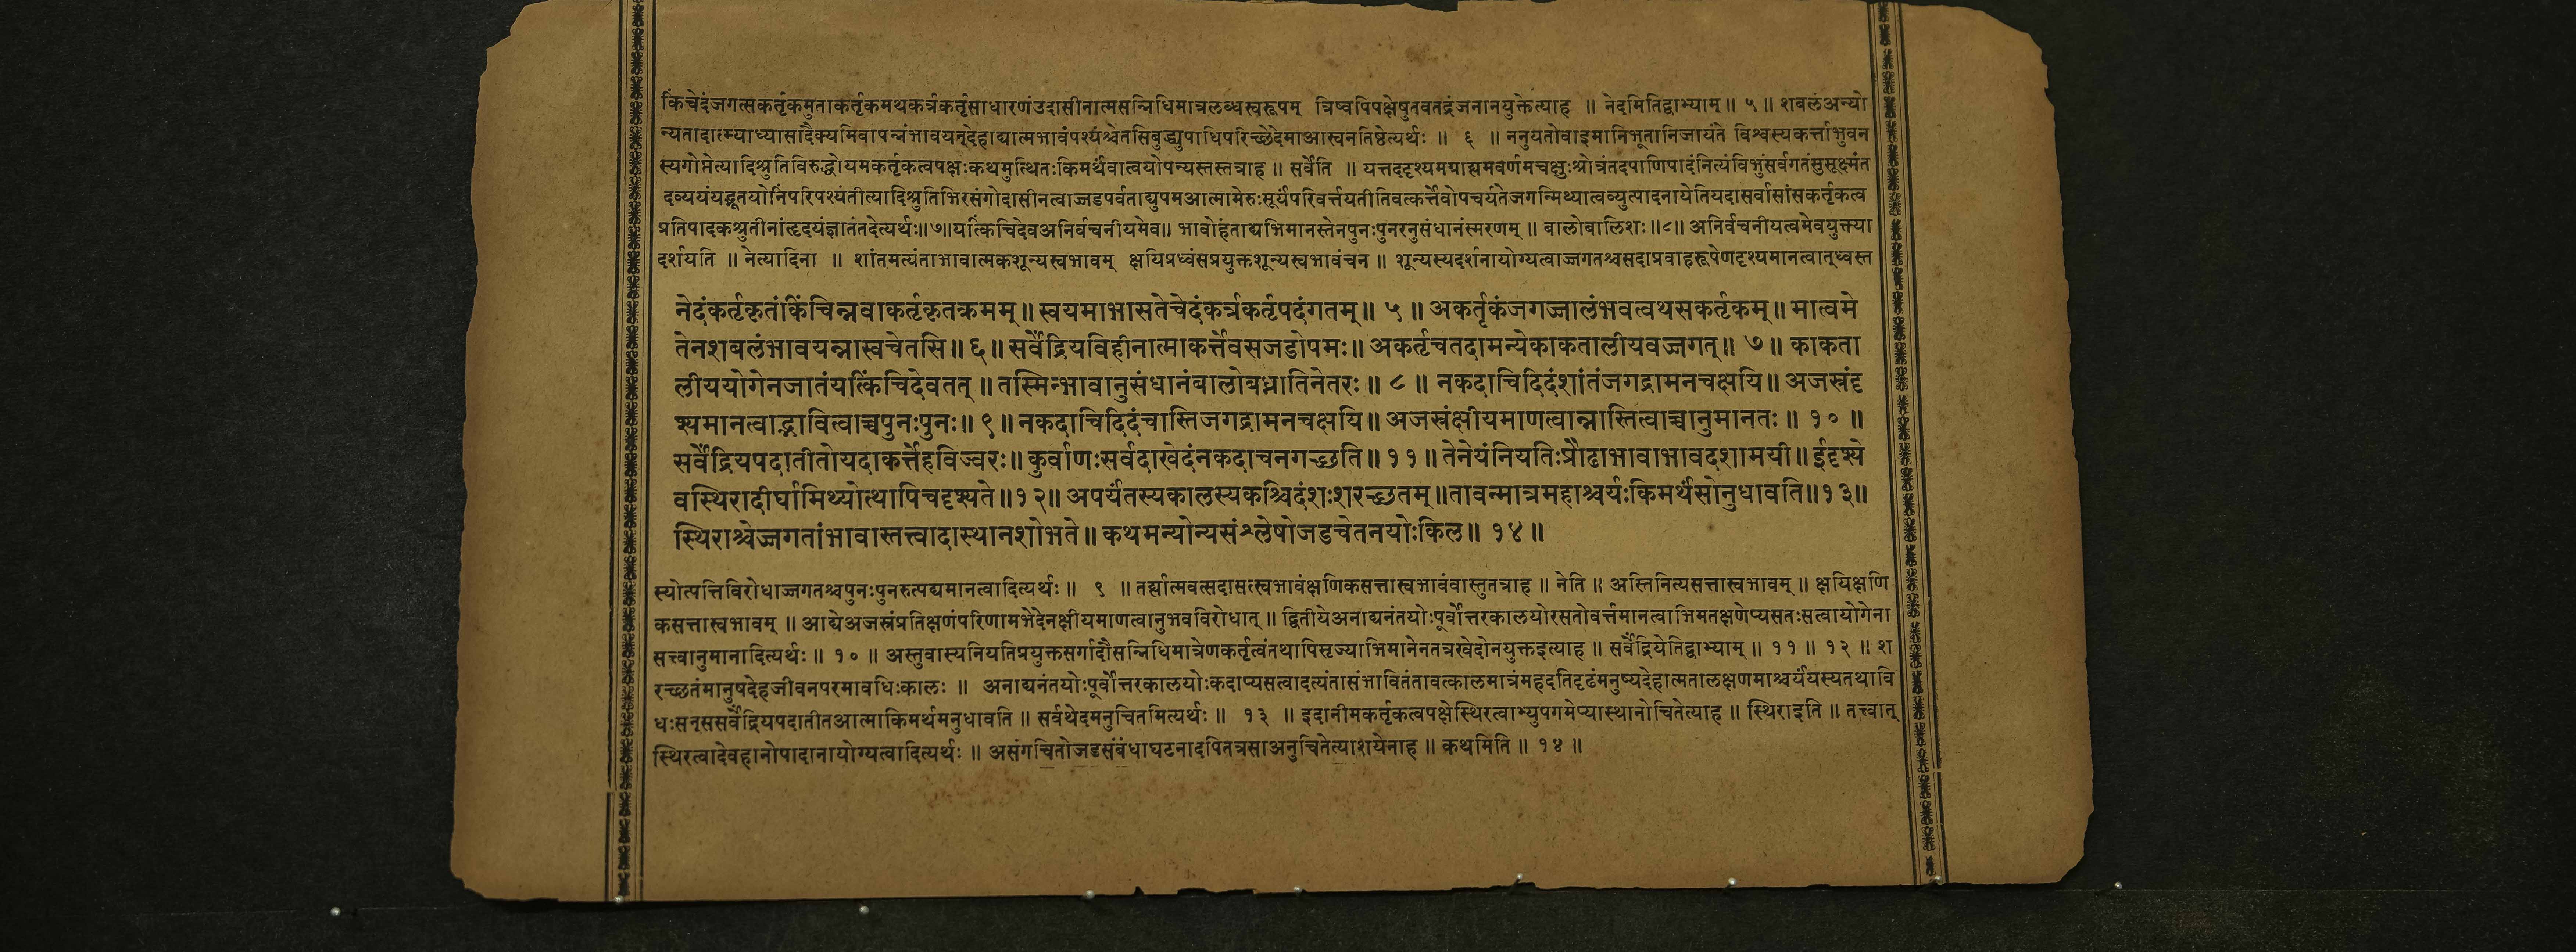 किंचेदंजगत्सकर्तृकमुताकर्तृकमथकर्त्रकर्तृसाधारणंउदासीनात्मसन्निधिमात्रलब्धस्वरूपम् त्रिष्वपिपक्षेषुतवतद्रंजनानयुक्तेत्याह ॥ नेदमितिद्वाभ्याम् ॥ ५ ॥ शबलंअन्यो
न्यतादात्म्याध्यासादैक्यमिवापन्नंभावयन्देहाद्यात्मभावंपश्यंश्चेतसिबुद्ध्युपाधिपरिच्छेदेमाआस्वनतिष्ठेत्यर्थः ॥ ६ ॥ ननुयतोवाइमानिभूतानिजायंते विश्वस्यकर्त्ताभुवन
स्यगोप्तेत्यादिश्रुतिविरुद्धोयमकर्तृकत्वपक्षःकथमुत्थितःकिमर्थंवात्वयोपन्यस्तस्तत्राह ॥ सर्वेति ॥ यत्तददृश्यमग्राह्यमवर्णमचक्षुःश्रोत्रंतदपाणिपादंनित्यंविभुंसर्वगतंसुसूक्ष्मंत
दव्ययंयद्भूतयोनिंपरिपश्यंतीत्यादिश्रुतिभिरसंगोदासीनत्वाज्जडपर्वताद्युपमआत्मामेरुःसूर्यंपरिवर्त्तयतीतिवत्कर्त्तेवोपचर्यतेजगन्मिथ्यात्वव्युत्पादनायेतियदासर्वासांसकर्तृकत्व
प्रतिपादकश्रुतीनांहृदयंज्ञातंतदेत्यर्थः॥७॥यत्किंचिदेवअनिर्वचनीयमेव॥ भावोहंताद्यभिमानस्तेनपुनःपुनरनुसंधानंस्मरणम् ॥ बालोबालिशः॥८॥ अनिर्वचनीयत्वमेवयुक्त्या
दर्शयति ॥ नेत्यादिना ॥ शांतमत्यंताभावात्मकशून्यस्वभावम् क्षयिप्रध्वंसप्रयुक्तशून्यस्वभावंचन ॥ शून्यस्यदर्शनायोग्यत्वाज्जगतश्चसदाप्रवाहरूपेणदृश्यमानत्वात्ध्वस्त
नेदंकर्तृकृतंकिंचिन्नवाकर्तृकृतक्रमम् ॥ स्वयमाभासतेचेदंकर्त्रकर्तृपदंगतम् ॥ ५ ॥ अकर्तृकंजगज्जालंभवत्वथसकर्तृकम् ॥ मात्वमे
तेनशबलंभावयन्नास्वचेतसि ॥ ६ ॥ सर्वेंद्रियविहीनात्माकर्त्तेवसजडोपमः ॥ अकर्तृचतदामन्येकाकतालीयवज्जगत् ॥ ७ ॥ काकता
लीययोगेनजातंयत्किंचिदेवतत् ॥ तस्मिन्भावानुसंधानंबालोबध्नातिनेतरः ॥ ८ ॥ नकदाचिदिदंशांतंजगद्रामनचक्षयि ॥ अजस्रंदृ
श्यमानत्वाद्भावित्वाच्चपुनःपुनः ॥ ९ ॥ नकदाचिदिदंचास्तिजगद्रामनचक्षयि ॥ अजस्रंक्षीयमाणत्वान्नास्तित्वाच्चानुमानतः ॥ १० ॥
सर्वेंद्रियपदातीतोयदाकर्त्तेहविज्वरः ॥ कुर्वाणःसर्वदाखेदंनकदाचनगच्छति ॥ ११ ॥ तेनेयंनियतिःप्रौढाभावाभावदशामयी ॥ ईदृश्ये
वस्थिरादीर्घामिथ्योत्थापिचदृश्यते ॥ १२ ॥ अपर्यंतस्यकालस्यकश्चिदंशःशरच्छतम् ॥ तावन्मात्रमहाश्चर्यःकिमर्थंसोनुधावति ॥ १३ ॥
स्थिराश्चेज्जगतांभावास्तत्त्वादास्थानशोभते ॥ कथमन्योन्यसंश्लेषोजडचेतनयोःकिल ॥ १४ ॥
स्योत्पत्तिविरोधाज्जगतश्चपुनःपुनरुत्पद्यमानत्वादित्यर्थः ॥ ९ ॥ तर्ह्यात्मवत्सदासत्स्वभावंक्षणिकसत्तास्वभावंवास्तुतत्राह ॥ नेति ॥ अस्तिनित्यसत्तास्वभावम् ॥ क्षयिक्षणि
कसत्तास्वभावम् ॥ आद्येअजस्रंप्रतिक्षणंपरिणामभेदेनक्षीयमाणत्वानुभवविरोधात् ॥ द्वितीयेअनाद्यनंतयोःपूर्वोत्तरकालयोरसतोवर्त्तमानत्वाभिमतक्षणेप्यसतःसत्वायोगेना
सत्त्वानुमानादित्यर्थः ॥ १० ॥ अस्तुवास्यनियतिप्रयुक्तसर्गादौसन्निधिमात्रेणकर्तृत्वंतथापिसृज्याभिमानेनतत्रखेदोनयुक्तइत्याह ॥ सर्वेंद्रियेतिद्वाभ्याम् ॥ ११ ॥ १२ ॥ श
रच्छतंमानुषदेहजीवनपरमावधिःकालः ॥ अनाद्यनंतयोःपूर्वोत्तरकालयोःकदाप्यसत्वादत्यंतासंभावितंतावत्कालमात्रंमहदतिदृढंमनुष्यदेहात्मतालक्षणमाश्चर्यंयस्यतथावि
धःसन्ससर्वेंद्रियपदातीतआत्माकिमर्थमनुधावति ॥ सर्वथेदमनुचितमित्यर्थः ॥ १३ ॥ इदानीमकर्तृकत्वपक्षेस्थिरत्वाभ्युपगमेप्यास्थानोचितेत्याह ॥ स्थिराइति ॥ तत्त्वात्
स्थिरत्वादेवहानोपादानायोग्यत्वादित्यर्थः ॥ असंगचितोजडसंबंधाघटनादपितत्रसाअनुचितेत्याशयेनाह ॥ कथमिति ॥ १४ ॥